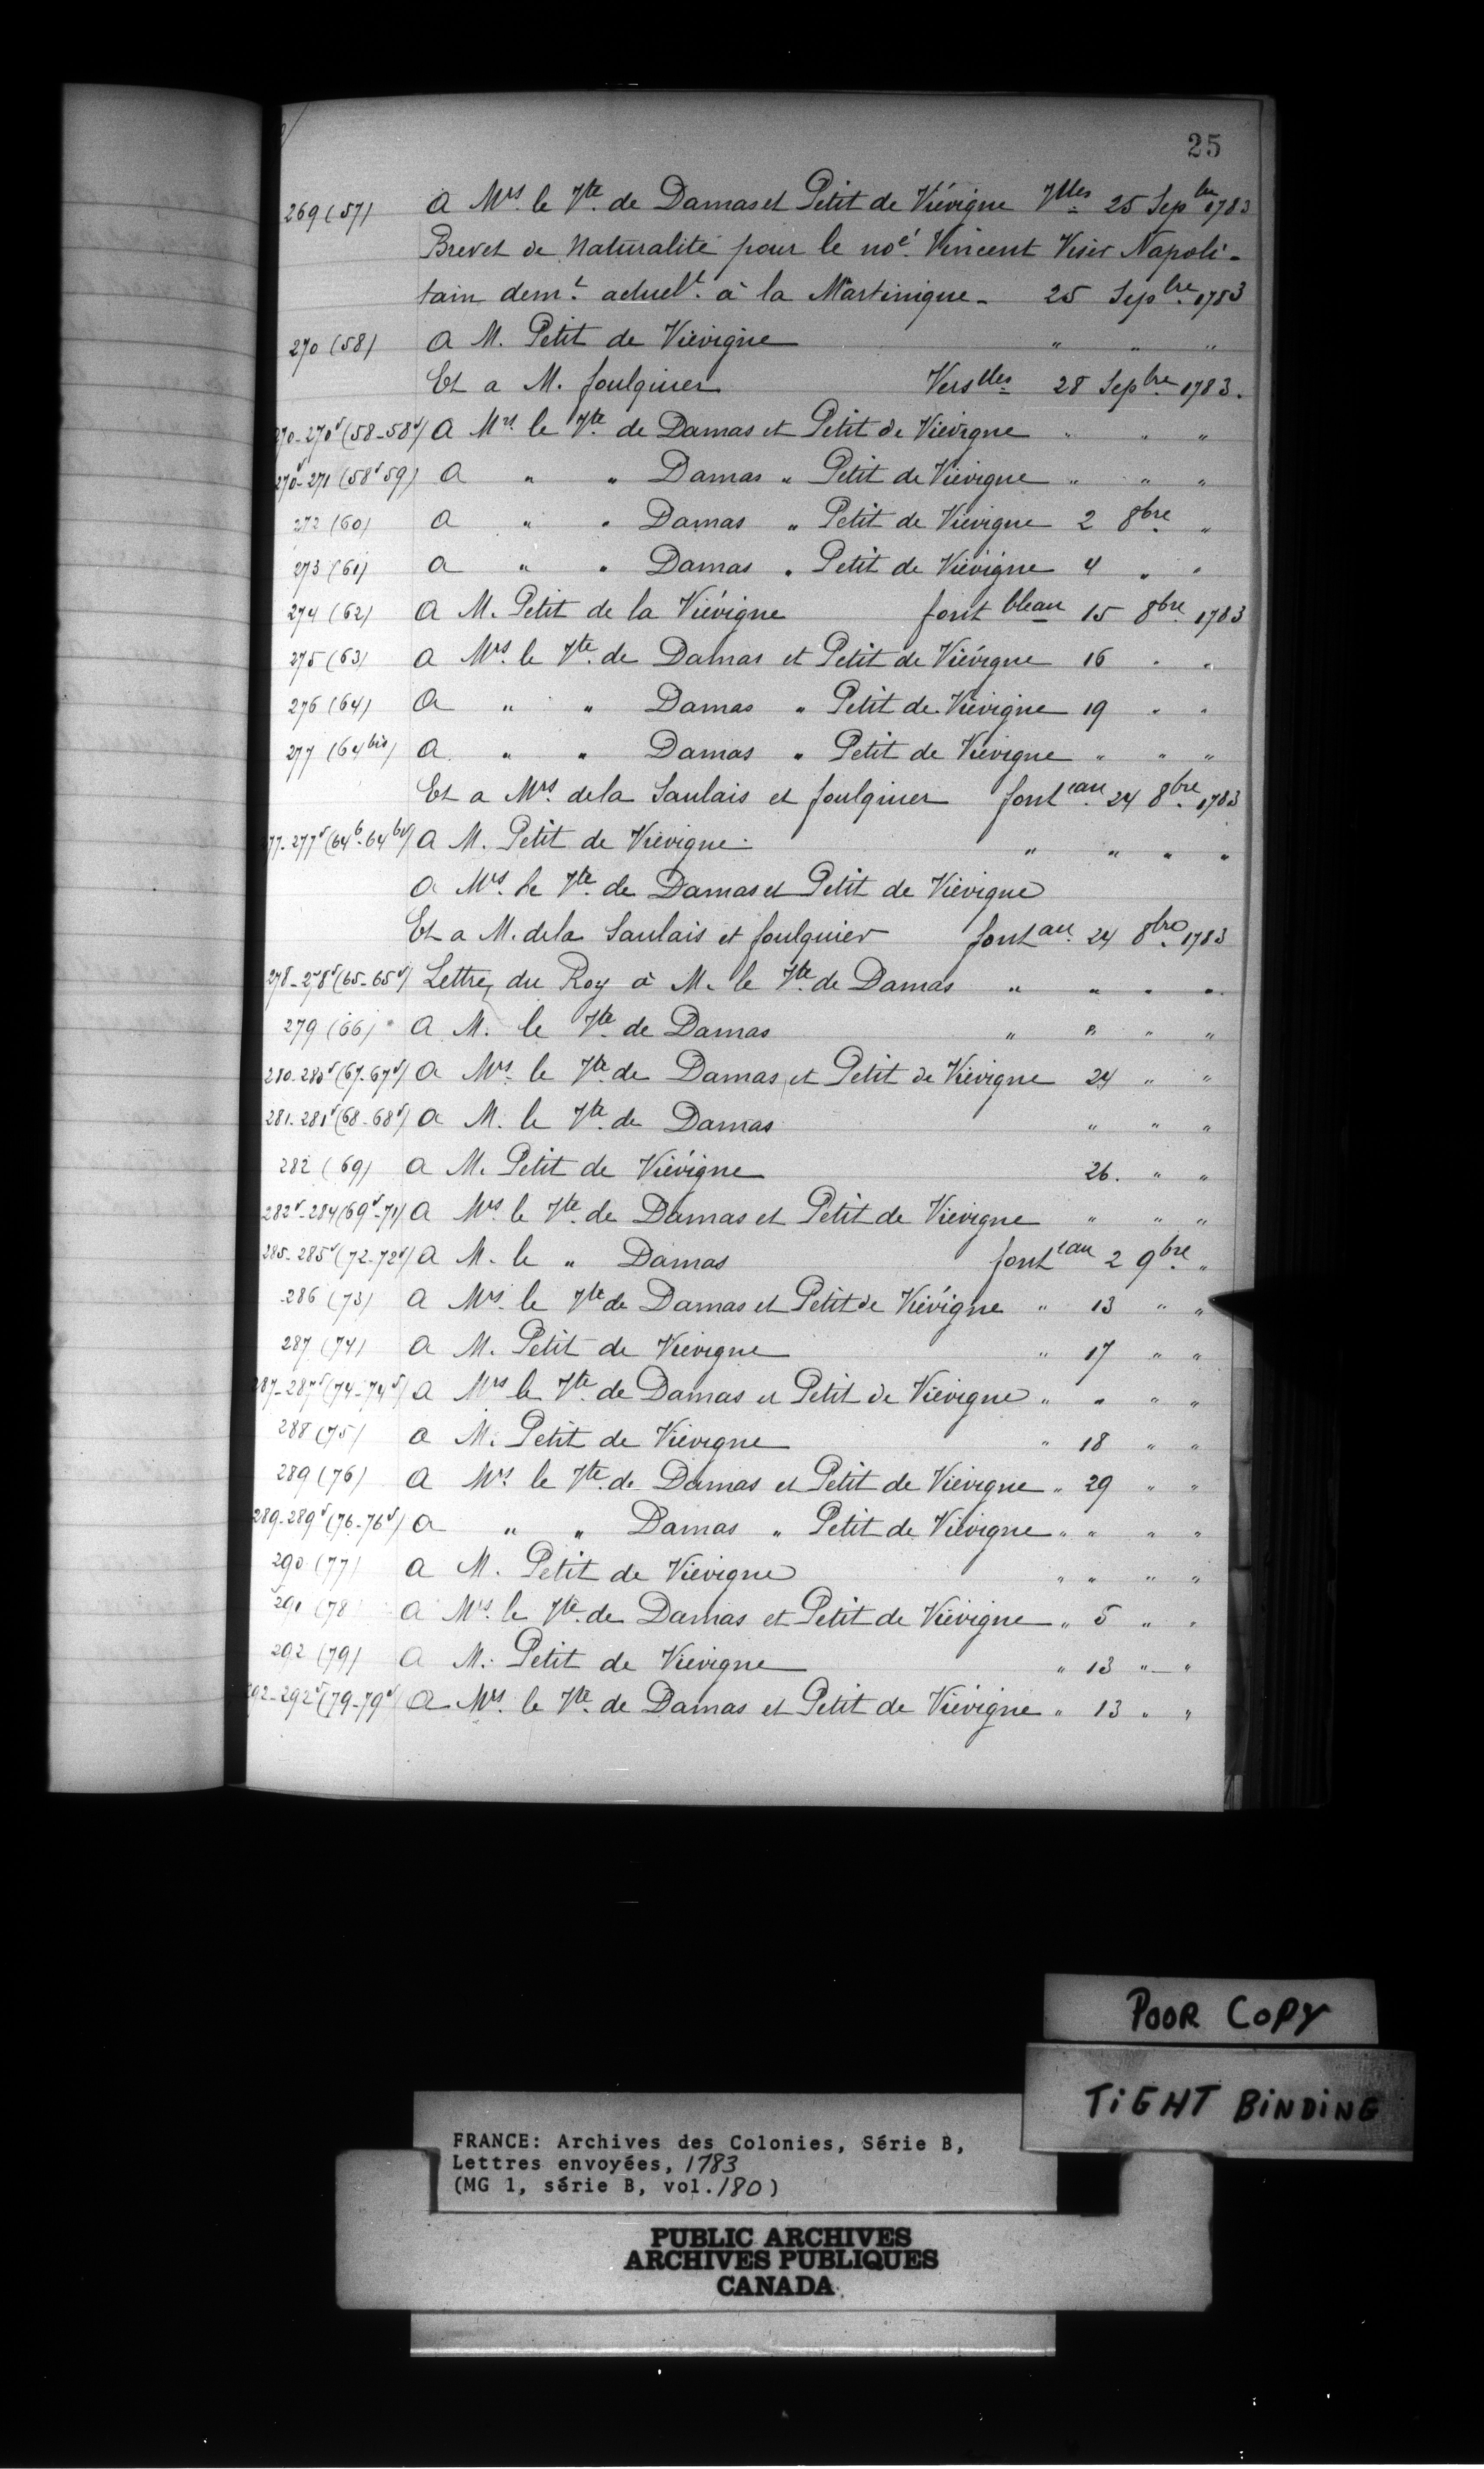 25
269 (57) A Mrs. le Vte. de Damas et Petit de Viévigne Vlles 25 Sepbre 1783
Brevet de Naturalité pour le noé. Vincent Visir Napoli-
tain demt. actuelt. à la Martinique - 25 Sepbre. 1783
270 (58) A M. Petit de Viévigne " " "
Et a M. foulquier Verslles 28 Sepbre. 1783.
270-270v (58-58v) A Mrs. le Vte. de Damas et Petit de Viévigne " " "
270v-271 (58v 59) A " " Damas " Petit de Viévigne " " "
272 (60) A " " Damas " Petit de Viévigne 2 8bre. "
273 (61) A " " Damas " Petit de Viévigne 4 " "
274 (62) A M. Petit de la Viévigne font bleau 15 8bre. 1783
275 (63) A Mrs. le Vte. de Damas et Petit de Viévigne 16 " "
276 (64) A " " Damas " Petit de Viévigne 19 " "
277 (64bis) A " " Damas " Petit de Viévigne " " "
Et a Mrs. dela Saulais et foulquier fonteau. 24 8bre. 1783
277-277v (64b-64bv) A M. Petit de Viévigne. " " " "
A Mrs. le Vte. de Damas et Petit de Viévigne
Et a M. dela Saulais et foulquier fontau. 24 8bre. 1783
278-278v (65-65v) Lettre du Roy à M. le Vte. de Damas " " " "
279 (66) A M. le Vte. de Damas " " " "
280-280v (67-67v) A Mrs. le Vte. de Damas, et Petit de Viévigne 24 " "
281-281v (68-68v) A M. le Vte. de Damas " " "
282 (69) A M. Petit de Viévigne 26. " "
282v-284 (69v-71) A Mrs. le Vte. de Damas et Petit de Viévigne " " "
285-285v (72-72v) A M. le " Damas fonteau 2 9bre. "
286 (73) A Mrs. le Vte de Damas et Petit de Viévigne " 13 " "
287 (74) A M. Petit de Viévigne " 17 " "
287-287v (74-74v) A Mrs le Vte. de Damas et Petit de Viévigne " " " "
288 (75) A M. Petit de Viévigne " 18 " "
289 (76) A Mrs. le Vte. de Damas et Petit de Viévigne " 29 " "
289-289v (76-76v) A " " Damas " Petit de Viévigne " " " "
290 (77) A M. Petit de Viévigne " " " "
291 (78) A Mrs. le Vte. de Damas et Petit de Viévigne " 5 " "
292 (79) A M. Petit de Viévigne " 13 " "
292-292v (79-79v) A Mrs. le Vte. de Damas et Petit de Viévigne " 13 " "
POOR COPY
TIGHT BINDING
FRANCE: Archives des Colonies, Série B,
Lettres envoyées, 1783
(MG 1, série B, vol. 180)
PUBLIC ARCHIVES
ARCHIVES PUBLIQUES
CANADA